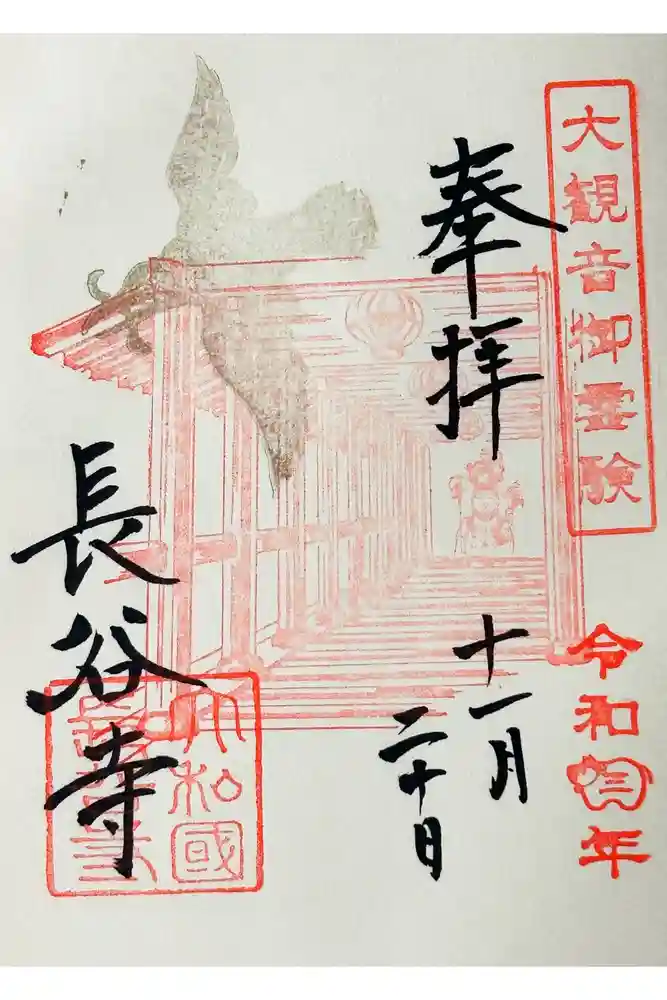 大観音御霊験
令和年
奉拝
十一月
二十日
長谷寺
大和國